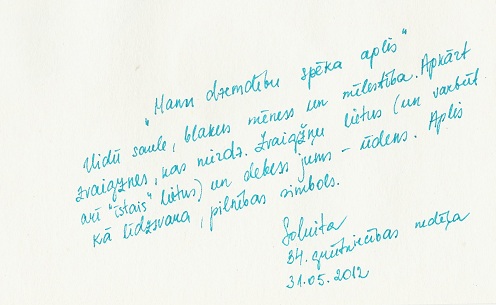 "Manu dzemdību spēka aplis"
Vidū saule, blakus mēness un mīlestība. Apkārt
zvaigznes, kas mirdz. Zvaigžņu lietus (un varbūt
arī "īstais" lietus) un debess jums - ūdens. Aplis
kā līdzsvara, pilnības simbols.
Solvita
34. grūtniecības nedēļa
31.05.2012